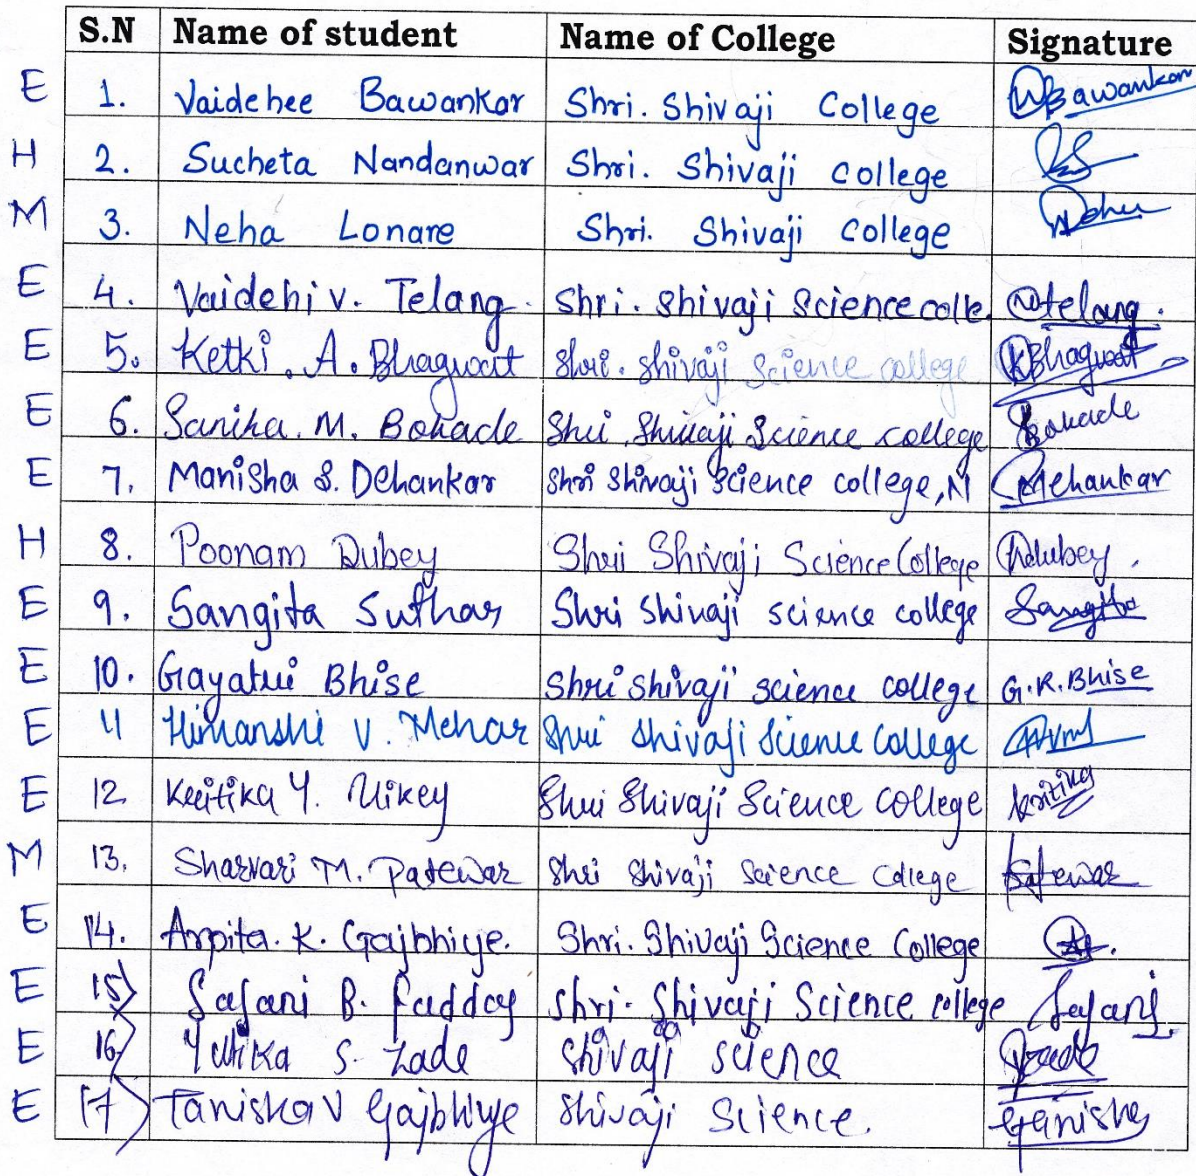 S.N Name of student Name of College Signature
E 1. Vaidehee Bawankar Shri. Shivaji College Bawankar
H 2. Sucheta Nandanwar Shri. Shivaji College
M 3. Neha Lonare Shri. Shivaji College Neha
E 4. Vaidehi v. Telang. Shri. Shivaji Science colle. telang.
E 5. Ketki. A. Bhagwat Shri. Shivaji Science college KBhagwat
E 6. Sanika. M. Bokade Shri. Shivaji Science college Bokade
E 7. Manisha S. Dehankar Shri Shivaji Science college, N Dehankar
H 8. Poonam Dubey Shri Shivaji Science College Pdubey.
E 9. Sangita Suthar Shri Shivaji science college Sangita
E 10. Gayatri Bhise Shri Shivaji science college G.R.Bhise
E 11 Himanshi V. Mehar Shri Shivaji Science College
E 12 Kritika Y. Uikey Shri Shivaji Science College kritika
M 13. Sharvari M. Patewar Shri Shivaji Science College Patewar
E 14. Arpita. K. Gajbhiye. Shri. Shivaji Science College
E 15) Sajani B. Shri. Shivaji Science college Sajani
E 16) Yutika S. Zade Shivaji science Zade
E 17) Taniska V Gajbhiye Shivaji Science. Taniska